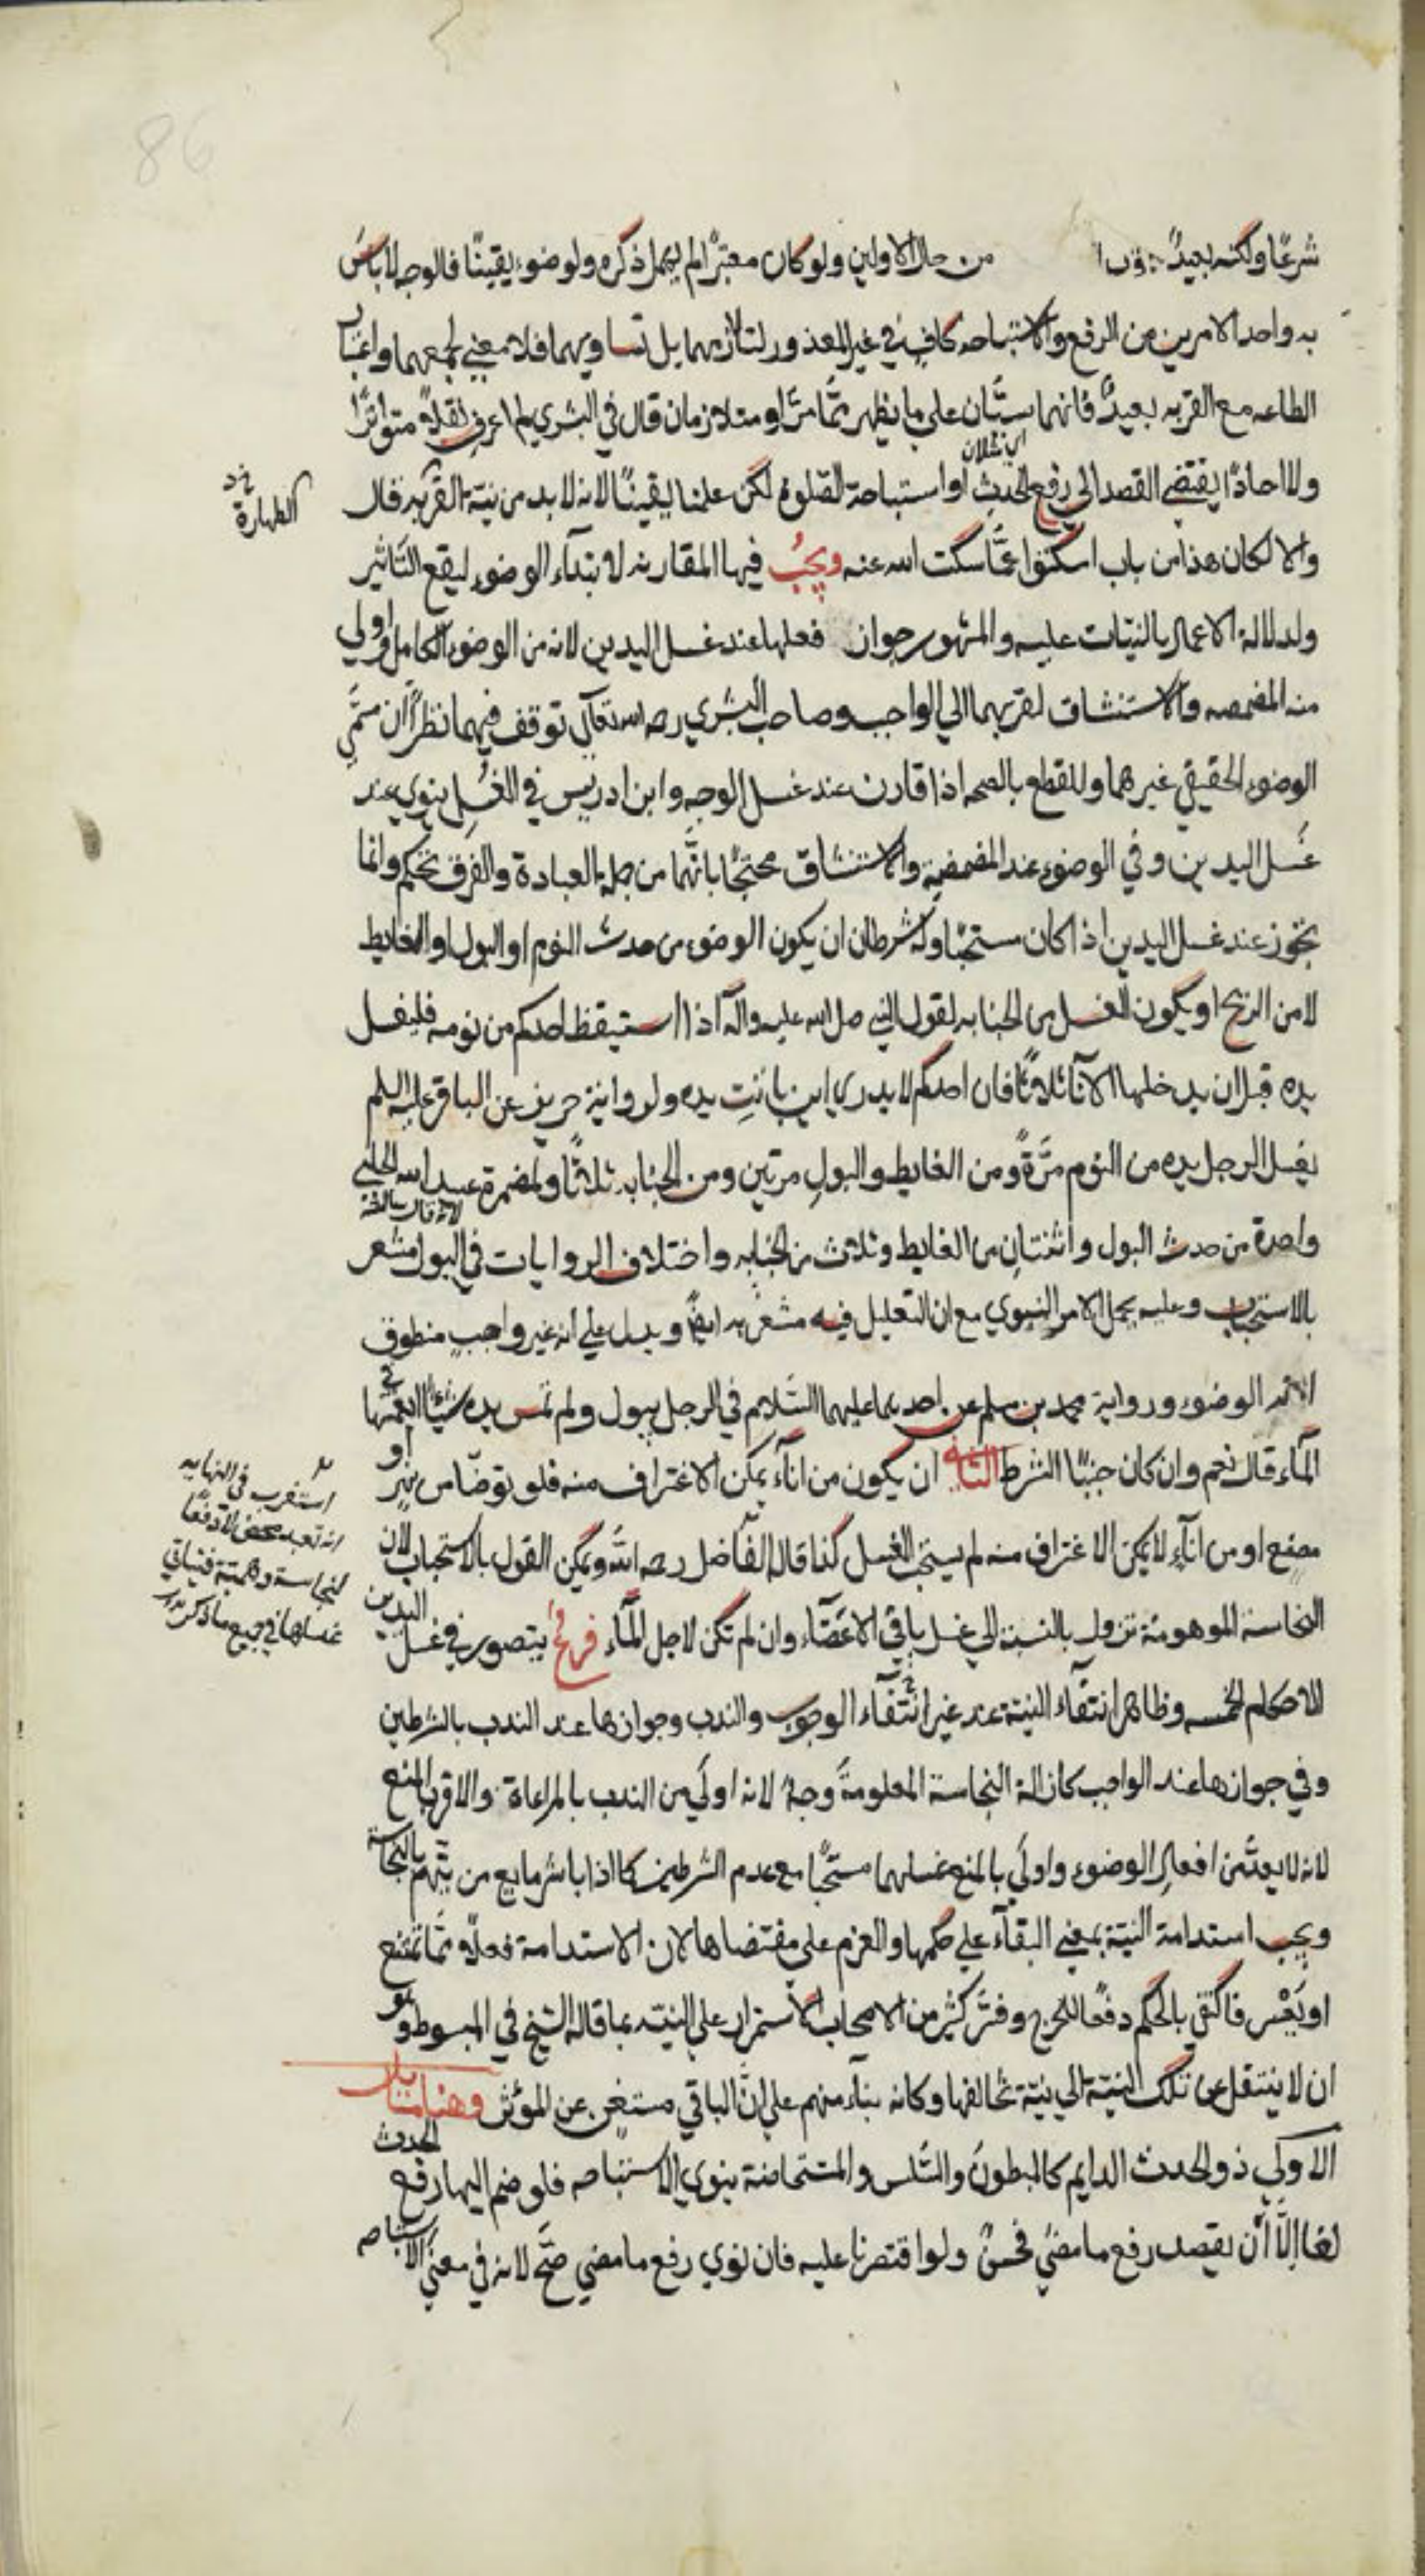 شرعًا ولكنه بعيدٌ من حال الاولين ولو كان معتبرًا لم يهمل ذكره ولو ضوء يقينًا فالوجه لا باس
به واحد الامرين من الرفع والاستباحه كافٍ في غير المعذور لتلازمهما بل تساويهما فلا معني لجمعهما واعتبار
الطاعه مع القربه بعيدٌ فانهما سيَّان علي ما يظهر ممَّا مرَّ او متلازمان قال في البشري لم اعرف نقلاً متواترًا
ولا احادًا يقتضي القصد الي رفع الحدث او استباحة الصّلوة لكن علمنا يقينًا انه لا بد من نيّة القربه قال
الطهارة
والا لكان هذا من باب اسكتوا عمَّا سكت الله عنه ويجبُ فيها المقارنه لابتدآء الوضوء ليقع التّاثير
ولدلالة الاعمال بالنيّات عليه والمشهور جواز فعلها عند غسل اليدين لانه من الوضوء الكامل واولي
منه المضمضه والاستنشاق لقربهما الي الواجب وصاحب البشري رحمه الله تعالي توقف فيهما نظرًا ان مسمَّي
الوضوء الحقيقي غيرهما وللقطع بالصحه اذا قارن عند غسل الوجه وابن ادريس في الغُسل ينوي عند
غَسل اليدين وفي الوضوء عند المضمضة والاستنشاق محتجًّا بانَّهما من جملة العبادة والفرق تحكم وانما
يجوز عند غسل اليدين اذا كان مستحبًّا وله شرطان ان يكون الوضوء من حدث النوم او البول او الغايط
لا من الريح او يكون الغسل من الجنابه لقول النبي صلي الله عليه واله اذا استيقظ احدكم من نومه فليغسل
يده قبل ان يدخلها الانآء ثلاثًا فان احدكم لا يدري اين باتت يده ولرواية حريز عن الباقر عليه السلم
يغسل الرجل يده من النوم مرَّةً ومن الغايط والبول مرتين ومن الجنابه ثلاثًا ولمضمرة عبيد الله الحلبي
واحدة من حدث البول واثنتان من الغايط وثلاث من الجنابه واختلاف الروايات في البول مشعر
بالاستحباب وعليه يحمل الامر النبوي مع ان التعليل فيه مشعرٌ به ايضًا ويدل علي انه غير واجبٍ منطوق
الوضوء ورواية محمد بن مسلم عن احدهما عليهما السّلام في الرجل يبول ولم تمس يده شيئًا ايغمسها في
المآء قال نعم وان كان جنبًا الشرط الثاني ان يكون من انآء يمكن الاغتراف منه فلو توضّا من نهر او
مصنع او من انآء لا يمكن الاغتراف منه لم يستحب الغسل كذا قاله الفاضل رحمه الله ويمكن القول بالاستحباب لان
استقرب في النهايه
انه تعبد محض لا دفعًا
لنجاسة وهميّة فينبغي
غسلها في جميع ما ذكر
النجاسة الموهومة تزول بالنسبة الي غسل باقي الاعضآء وان لم تكن لاجل المآء فرعٌ يتصور في غسل اليدين
الاحكام الخمسه وظاهر انتفآء النية عند غير انتفآء الوجوب والندب وجوازها عند الندب بالشرطين
وفي جوازها عند الواجب كازالة النجاسة المعلومة وجهٌ لانه اولي من الندب بالمراعاة والاقرب المنع
لانه لا يعدّ من افعال الوضوء واولي بالمنع غسلهما مستحبًّا مع عدم الشرطين كما اذا باشر مايع من يتّهم بالنجاسة
ويجب استدامة النيّة بمعني البقآء علي حكمها والعزم علي مقتضاها لان الاستدامة فعلاً ممَّا تمتنع
او يَعْسر فاكتفي بالحكم دفعًا للحرج وفسَّر كثير من الاصحاب الاستمرار علي النيّه بما قاله الشيخ في المبسوط وهو
ان لا ينتقل عن تلك النيّة الي نيّة تخالفها وكانه بنآء منهم علي انَّ الباقي مستغنٍ عن المؤثر وهنا مسائل
الاولي ذو الحدث الدايم كالمبطون والسَّلس والمستحاضة ينوي الاستباحه فلو ضم اليها رفع الحدث
لغا الَّا أن يقصد رفع ما مضي فحسنٌ ولو اقتصرنا عليه فان نوي رفع ما مضي صحَّ لانه في معني الاستباحه